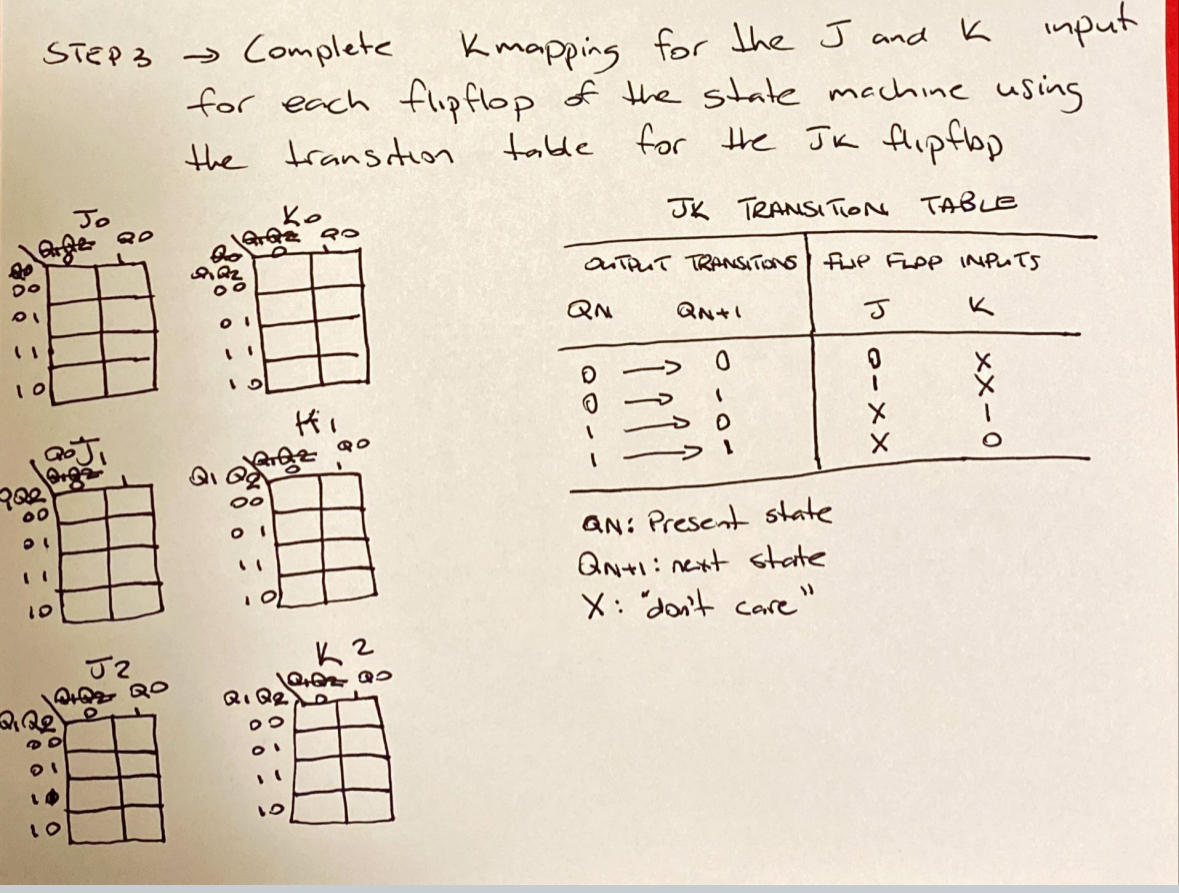 STEP 3 → Complete Kmapping for the J and K input
for each flipflop of the state machine using
the transition table for the JK flipflop
J0
Q1Q2 Q0
Q0 0 1
00
01
11
10
K0
Q1Q2 Q0
Q0 0 1
Q1Q2
00
01
11
10
J1
Q0
Q1Q2
QQ2 0 1
00
01
11
10
K1
Q1Q2 Q0
Q1 Q2 0 1
00
01
11
10
J2
Q1Q2 Q0
Q1Q2 0 1
00
01
1
10
K2
Q1Q2 Q0
Q1Q2 0 1
00
01
11
10
JK TRANSITION TABLE
OUTPUT TRANSITIONS FLIP FLOP INPUTS
QN QN+1 J K
0 → 0 0 X
0 → 1 1 X
1 → 0 X 1
1 → 1 X 0
QN: Present state
QN+1: next state
X: "don't care"